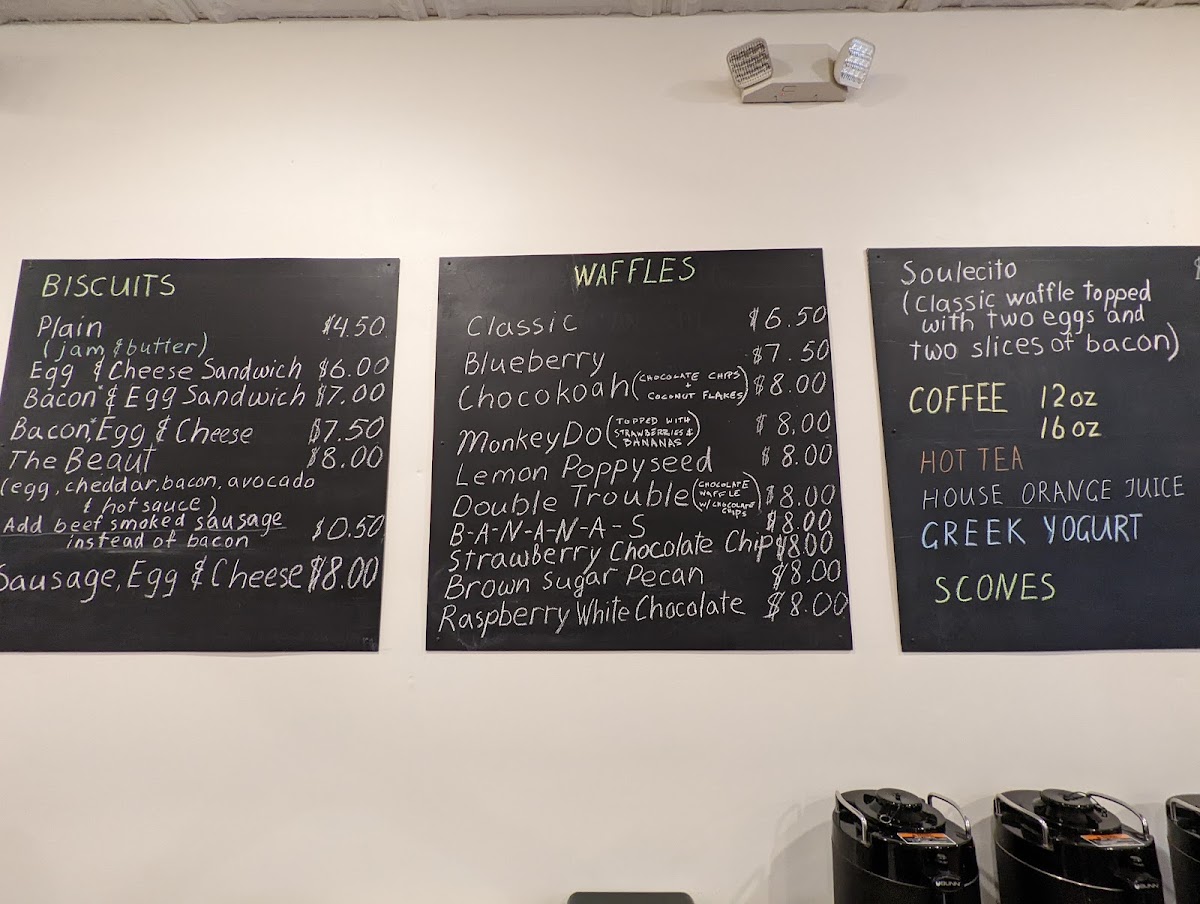 BISCUITS
Plain $4.50
(jam & butter)
Egg & Cheese Sandwich $6.00
Bacon* & Egg Sandwich $7.00
Bacon*, Egg & Cheese $7.50
The Beaut $8.00
(egg, cheddar, bacon, avocado
& hot sauce)
Add beef smoked sausage $0.50
instead of bacon
Sausage, Egg & Cheese $8.00
WAFFLES
Classic $6.50
Blueberry $7.50
Chocokoah (CHOCOLATE CHIPS $8.00
+
COCONUT FLAKES)
Monkey Do (TOPPED WITH $8.00
STRAWBERRIES &
BANANAS)
Lemon Poppyseed $8.00
Double Trouble (CHOCOLATE $8.00
WAFFLE
W/ CHOCOLATE
CHIPS)
B-A-N-A-N-A-S $8.00
Strawberry Chocolate Chip $8.00
Brown Sugar Pecan $8.00
Raspberry White Chocolate $8.00
Soulecito $
(Classic waffle topped
with two eggs and
two slices of bacon)
COFFEE 12oz
16oz
HOT TEA
HOUSE ORANGE JUICE
GREEK YOGURT
SCONES
BUNN
BUNN